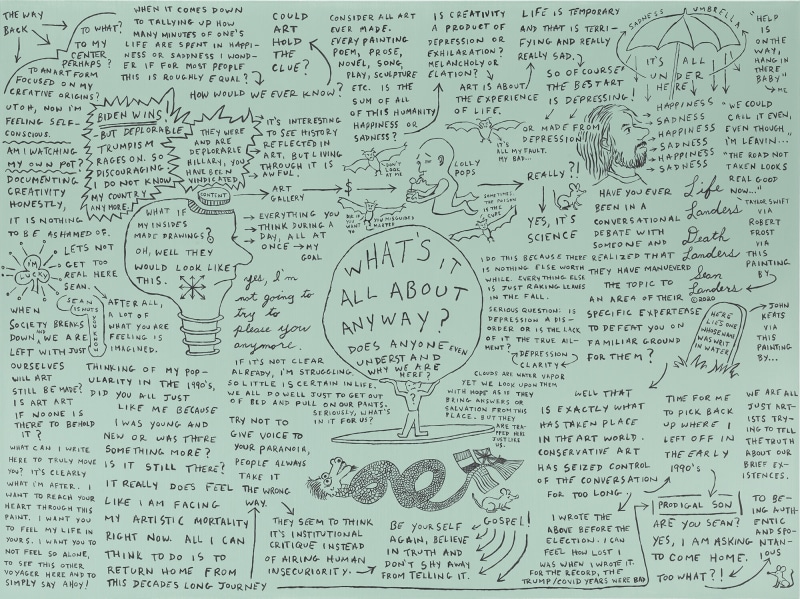 THE WAY
BACK
TO WHAT?
TO MY
CENTER
PERHAPS?
TO AN ART FORM
FOCUSED ON MY
CREATIVE ORIGINS?
UT OH, NOW I'M
FEELING SELF-
CONSCIOUS.
AM I WATCHING
MY OWN POT?
DOCUMENTING
CREATIVITY
HONESTLY,
IT IS NOTHING
TO BE ASHAMED OF.
WHEN IT COMES DOWN
TO TALLYING UP HOW
MANY MINUTES OF ONE'S
LIFE ARE SPENT IN HAPPI-
NESS OR SADNESS I WOND-
ER IF FOR MOST PEOPLE
THIS IS ROUGHLY EQUAL?
HOW WOULD WE EVER KNOW?
COULD
ART
HOLD
THE
CLUE?
CONSIDER ALL ART
EVER MADE.
EVERY PAINTING
POEM, PROSE,
NOVEL, SONG,
PLAY, SCULPTURE
ETC. IS THE
SUM OF ALL
OF THIS HUMANITY
HAPPINESS OR
SADNESS?
IS CREATIVITY
A PRODUCT OF
DEPRESSION OR
EXHILARATION?
MELANCHOLY OR
ELATION?
ART IS ABOUT
THE EXPERIENCE
OF LIFE.
LIFE IS TEMPORARY
AND THAT IS TERRI-
FYING AND REALLY
REALLY SAD.
SO OF COURSE
THE BEST ART
IS DEPRESSING!
OR MADE FROM
DEPRESSION
SADNESS UMBRELLA
IT'S ALL
UNDER
HERE
HAPPINESS
SADNESS
HAPPINESS
SADNESS
HAPPINESS
SADNESS
"HELP
IS
ON THE
WAY,
HANG IN
THERE
BABY"
ME
"WE COULD
CALL IT EVEN,
EVEN THOUGH
I'M LEAVIN...
"THE ROAD NOT
TAKEN LOOKS
REAL GOOD
NOW..."
TAYLOR SWIFT
VIA
ROBERT
FROST
VIA
THIS
PAINTING
BY
BIDEN WINS!
BUT DEPLORABLE
TRUMPISM
RAGES ON. SO
DISCOURAGING
I DO NOT KNOW
MY COUNTRY
ANYMORE.
THEY WERE
AND ARE
DEPLORABLE
HILLARY, YOU
HAVE BEEN
VINDICATED
CONTENT
IT'S INTERESTING
TO SEE HISTORY
REFLECTED IN
ART, BUT LIVING
THROUGH IT IS
AWFUL.
ART
GALLERY
$
EVERYTHING YOU
THINK DURING A
DAY, ALL AT
ONCE → MY
GOAL
WHAT IF
MY INSIDES
MADE DRAWINGS?
OH, WELL THEY
WOULD LOOK LIKE
THIS.
DON'T
LOOK
AT ME
IT'S
ALL MY FAULT,
MY BAD...
LOLLY
POPS
SOMETIMES
THE POISON
IS THE
CURE
DIE IF
YOU WANT
TO
YOU MISGUIDED
MARTYR
REALLY?!
YES, IT'S
SCIENCE
HAVE YOU EVER
BEEN IN A
CONVERSATIONAL
DEBATE WITH
SOMEONE AND
REALIZED THAT
THEY HAVE MANUVERED
THE TOPIC TO
AN AREA OF THEIR
SPECIFIC EXPERTEASE
TO DEFEAT YOU ON
FAMILIAR GROUND
FOR THEM?
Life
Landers
Death
Landers
Sean
Landers
©2020
I'M
LUCKY
LETS NOT
GET TOO
REAL HERE
SEAN.
SEAN IS NUTS
YOU KNOW
WHEN
SOCIETY BREAKS
DOWN AND WE ARE
LEFT WITH JUST
OURSELVES
WILL ART
STILL BE MADE?
IS ART ART
IF NO ONE IS
THERE TO BEHOLD
IT?
AFTER ALL,
A LOT OF
WHAT YOU ARE
FEELING IS
IMAGINED.
yes, I'm
not going to
try to
please you
anymore.
WHAT'S IT
ALL ABOUT
ANYWAY?
DOES ANYONE EVEN
UNDERSTAND
WHY WE ARE
HERE?
?
I DO THIS BECAUSE THERE
IS NOTHING ELSE WORTH
WHILE. EVERYTHING ELSE
IS JUST RAKING LEAVES
IN THE FALL.
SERIOUS QUESTION: IS
DEPRESSION A DIS-
ORDER OR IS THE LACK
OF IT THE TRUE AIL-
MENT?
DEPRESSION
CLARITY
CLOUDS ARE WATER VAPOR
YET WE LOOK UPON THEM
WITH HOPE AS IF THEY
BRING ANSWERS OR
SALVATION FROM THIS
PLACE. BUT THEY
ARE TRA-
PPED HERE
JUST LIKE
US.
HERE
LIES ONE
WHOSE NAME
WAS WRIT
IN WATER
JOHN
KEATS
VIA
THIS
PAINTING
BY...
WHAT CAN I WRITE
HERE TO TRULY MOVE
YOU? IT'S CLEARLY
WHAT I'M AFTER. I
WANT TO REACH YOUR
HEART THROUGH THIS
PAINT. I WANT YOU
TO FEEL MY LIFE IN
YOURS. I WANT YOU TO
NOT FEEL SO ALONE,
TO SEE THIS OTHER
VOYAGER HERE AND TO
SIMPLY SAY AHOY!
THINKING OF MY POP-
ULARITY IN THE 1990'S,
DID YOU ALL JUST
LIKE ME BECAUSE
I WAS YOUNG AND
NEW OR WAS THERE
SOMETHING MORE?
IS IT STILL THERE?
IT REALLY DOES FEEL
LIKE I AM FACING
MY ARTISTIC MORTALITY
RIGHT NOW. ALL I CAN
THINK TO DO IS TO
RETURN HOME FROM
THIS DECADES LONG JOURNEY
IF IT'S NOT CLEAR
ALREADY, I'M STRUGGLING.
SO LITTLE IS CERTAIN IN LIFE.
WE ALL DO WELL JUST TO GET OUT
OF BED AND PULL ON OUR PANTS.
SERIOUSLY, WHAT'S
IN IT FOR US?
TRY NOT TO
GIVE VOICE TO
YOUR PARANOIA,
PEOPLE ALWAYS
TAKE IT
THE WRONG
WAY.
THEY SEEM TO THINK
IT'S INSTITUTIONAL
CRITIQUE INSTEAD
OF AIRING HUMAN
INSECURIORITY.
BE YOURSELF
AGAIN, BELIEVE
IN TRUTH AND
DON'T SHY AWAY
FROM TELLING IT.
GOSPEL!
WELL THAT
IS EXACTLY WHAT
HAS TAKEN PLACE
IN THE ART WORLD.
CONSERVATIVE ART
HAS SEIZED CONTROL
OF THE CONVERSATION
FOR TOO LONG.
I WROTE THE
ABOVE BEFORE THE
ELECTION. I CAN
FEEL HOW LOST I
WAS WHEN I WROTE IT.
FOR THE RECORD, THE
TRUMP/COVID YEARS WERE BAD
TIME FOR ME
TO PICK BACK
UP WHERE I
LEFT OFF IN
THE EARLY
1990'S
PRODIGAL SON
ARE YOU SEAN?
YES, I AM ASKING
TO COME HOME.
TOO WHAT?!
WE ARE ALL
JUST ART-
ISTS TRY-
ING TO TELL
THE TRUTH
ABOUT OUR
BRIEF EX-
ISTENCES.
TO BE-
ING AUTH-
ENTIC AND
SPON-
TAN-
IOUS